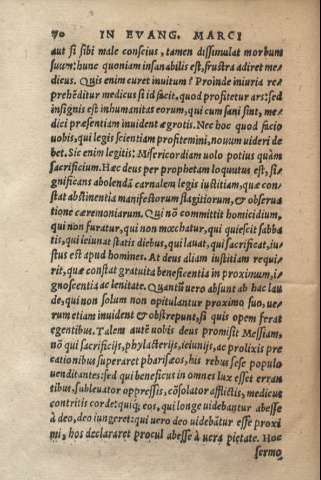 70 IN EVANG. MARCI
aut si sibi male conscius, tamen dissimulat morbum
suum: hunc quoniam insanabilis est, frustra adiret me-
dicus. Quis enim curet inuitum? Proinde iniuria re-
prehēditur medicus si id facit, quod profitetur ars: sed
insignis est inhumanitas eorum, qui cum sani sint, me-
dici præsentiam inuident ægrotis. Nec hoc quod facio
uobis, qui legis scientiam profitemini, nouum uideri de-
bet. Sic enim legitis: Misericordiam uolo potius quàm
sacrificium. Hæc deus per prophetam loquutus est, si-
gnificans abolendā carnalem legis iustitiam, quæ con-
stat abstinentia manifestorum flagitiorum, & obserua-
tione cæremoniarum. Qui nō committit homicidium,
qui non furatur, qui non mœchatur, qui quiescit sabba
tis, qui ieiunat statis diebus, qui lauat, qui sacrificat, iu-
stus est apud homines. At deus aliam iustitiam requi-
rit, quæ constat gratuita beneficentia in proximum, i-
gnoscentia ac lenitate. Quantū uero absunt ab hac lau
de, qui non solum non opitulantur proximo suo, ue-
rum etiam inuident & obstrepunt, si quis opem ferat
egentibus. Talem autē uobis deus promisit Messiam,
nō qui sacrificijs, phylacterijs, ieiunijs, ac prolixis pre
cationibus superaret pharisæos, his rebus sese populo
uenditantes: sed qui beneficus in omnes lux esset erran
tibus, subleuator oppressis, cōsolator afflictis, medicus
contritis corde: quiq; eos, qui longe uidebantur abesse
à deo, deo iungeret: qui uero deo uidebātur esse proxi
mi, hos declararet procul abesse à uera pietate. Hoc
sermo